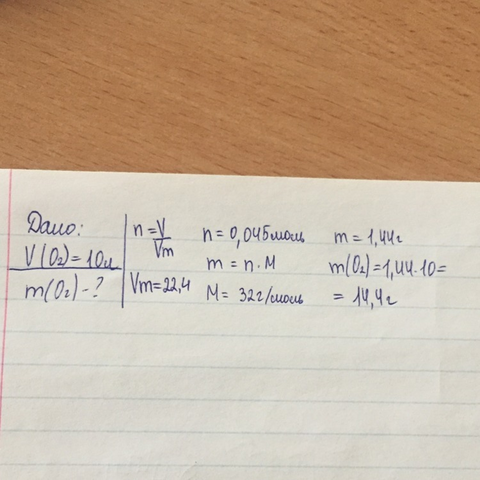 Дано:
V(O₂)=10л
m(O₂)-?
n=V/Vm
Vm=22,4
n=0,045моль
m=n·M
M=32г/моль
m=1,44г
m(O₂)=1,44·10=
=14,4г